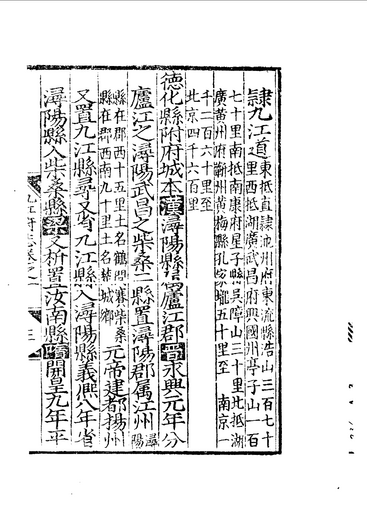 隸九江道東抵直隸池州府東流縣浩山三百七十
里西抵湖廣武昌府興國州亭子山一百
七十里南抵南康府星子縣吳障山三十里北抵湖
廣黃州府蘄州黃梅縣孔家壠五十里至 南京一
千二百六十里至
北京四千六百里
德化縣附府城本漢潯陽縣屬廬江郡晉永興元年分
廬江之潯陽武昌之柴桑二縣置潯陽郡属江州潯陽
縣在郡西十五里土名鶴問寨柴桑
縣在郡西南九十里土名楚城鄉元帝建都揚州
又置九江縣尋又省九江縣入潯陽縣義熈八年省
潯陽縣入柴桑縣梁又析置汝南縣隋開皇九年平
九江府志卷之一 三